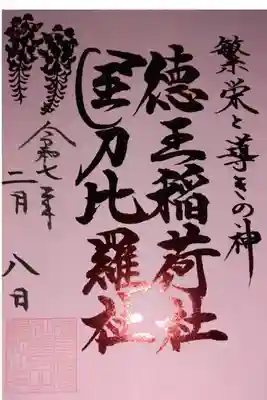 繁栄と導きの神
徳王稲荷社
金刀比羅社
令和七年
二月八日